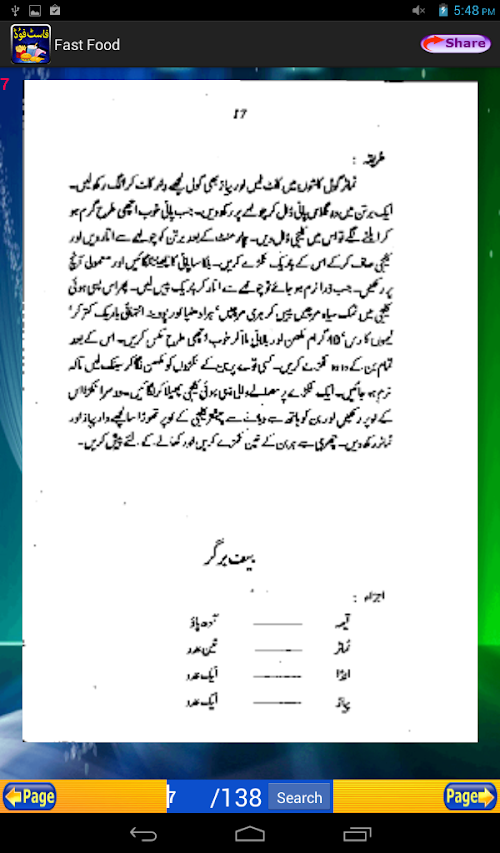 5:48 PM
فاسٹ فوڈ
Fast Food
Share
7
17
طریقہ :
ٹماٹر گول کاشوں میں کاٹ لیں اور پیاز بھی گول لچھے دار کاٹ کر الگ رکھ لیں۔
ایک برتن میں دو گلاس پانی ڈال کر چولہے پر رکھ دیں۔ جب پانی خوب اچھی طرح گرم ہو
کر ابلنے لگے تو اس میں کلیجی ڈال دیں۔ چار منٹ کے بعد برتن کو چولہے سے اتار دیں اور
کلیجی صاف کر کے اس کے باریک ٹکڑے کریں۔ ہلکا سا پانی کا چھینٹا لگائیں اور معمولی آنچ
پر رکھیں۔ جب ذرا نرم ہو جائے تو چولہے سے اتار کر باریک پیس لیں۔ پھر اس پسی ہوئی
کلیجی میں نمک سیاہ مرچیں پیس کر ہری مرچیں' ہرا دھنیا اور پودینہ انتہائی باریک کتر کر'
لیموں کا رس' 40 گرام مکھن اور بالائی ملا کر خوب اچھی طرح مکس کریں۔ اس کے بعد
تمام بن کے دو دو ٹکڑے کریں۔ کسی توے پر بن کے ٹکڑوں کو مکھن لگا کر سینک لیں تاکہ
نرم ہو جائیں۔ ایک ٹکڑے پر مصالحے والی پسی ہوئی کلیجی پھیلا کر لگائیں۔ دوسرا ٹکڑا اس
کے اوپر رکھیں اور بن کو ہاتھ سے دبانے سے پیشتر کلیجی کے اوپر تھوڑا سا لچھے دار پیاز اور
ٹماٹر رکھ دیں۔ چھری سے ہر بن کے تین ٹکڑے کریں اور کھانے کے لئے پیش کریں۔
بیف برگر
اجزاء :
قیمہ ——— آدھ پاؤ
ٹماٹر ——— تین عدد
انڈا ——— ایک عدد
پیاز ——— ایک عدد
Page
7
/138
Search
Page